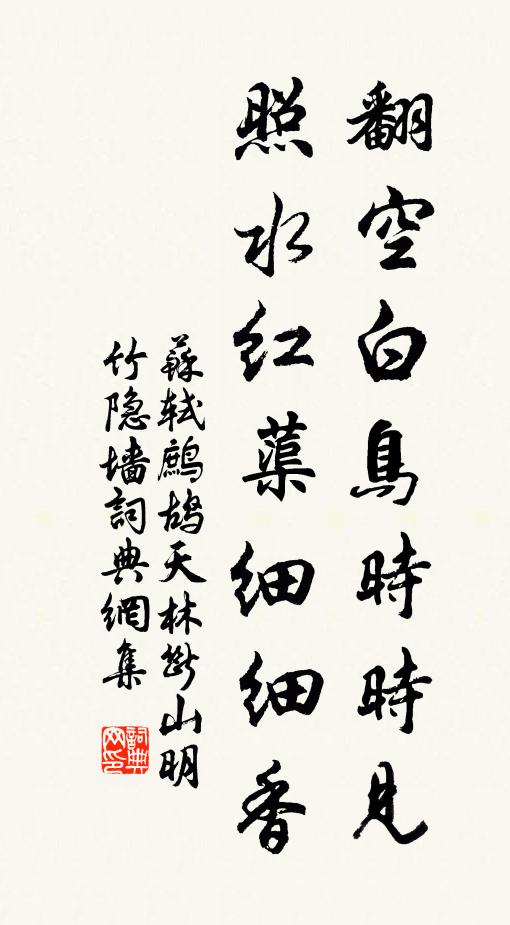 翻空白鳥時時見
照水紅蕖細細香
蘇軾鷓鴣天林斷山明
竹隐墙詞典網集
詞典网印